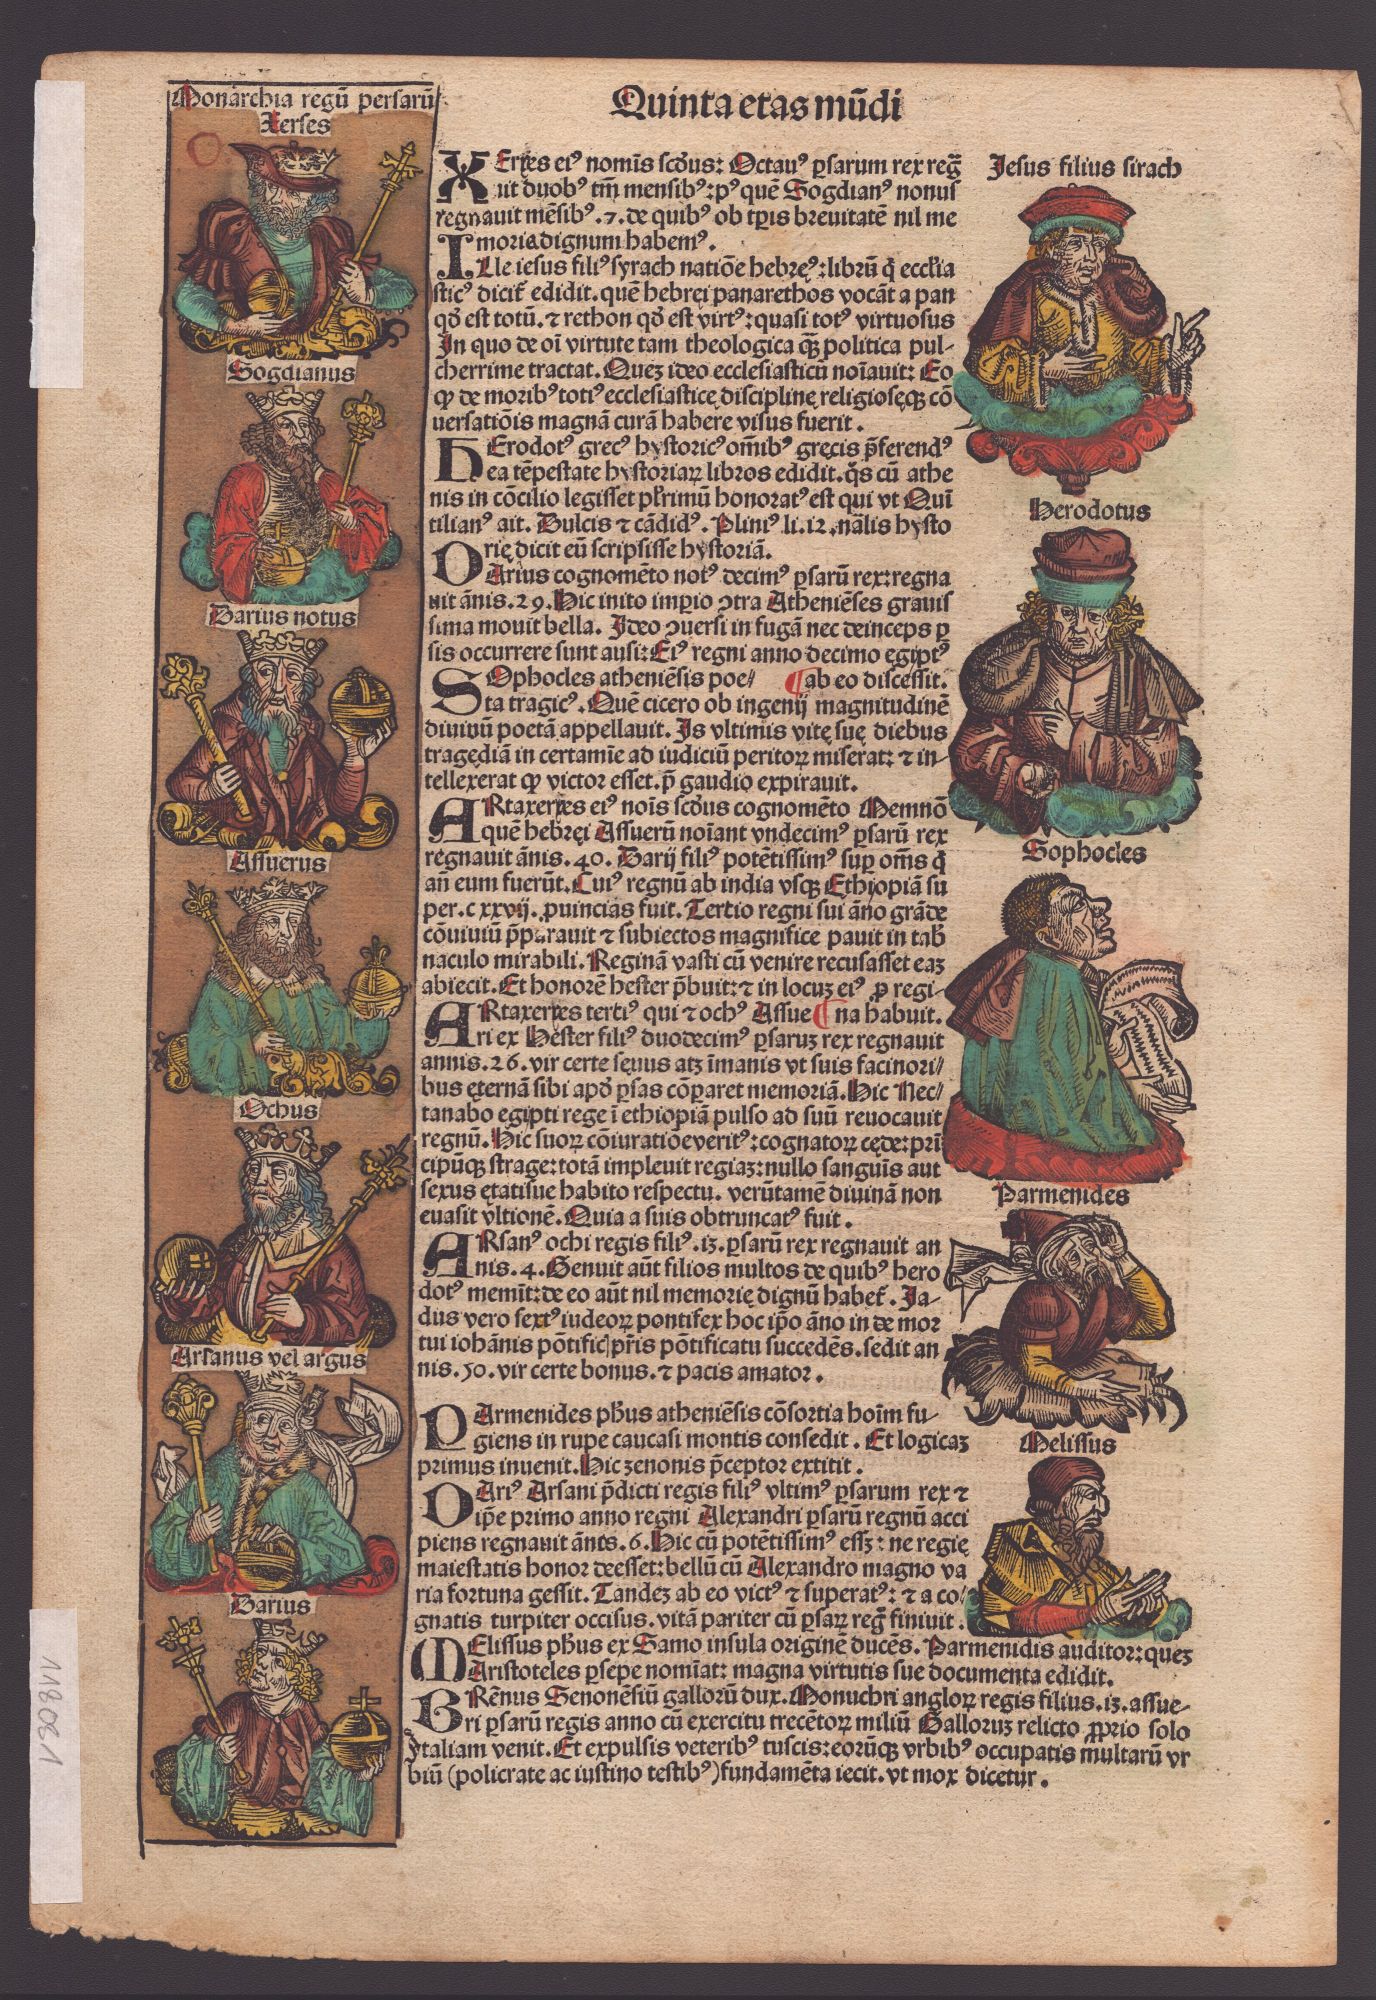 Quinta etas mūdi
Monarchia regū persarū
Xerses
Sogdianus
Darius notus
Assuerus
Ochus
Arsanus vel argus
Darius
XErxes eiꝰ nomīs scd̄us: Octauꝰ ꝑsarum rex reḡ
uit duobꝰ tm̄ mensibꝰ: pꝰ quē Sogdianꝰ nonus
regnauit mēsibꝰ .7. de quibꝰ ob tꝑis breuitatē nil me
moria dignum habemꝰ.
ILle iesus filiꝰ syrach natiōe hebręꝰ: librū q̄ eccl̄ia
sticꝰ dicit̄ edidit. quē hebręi panarethos vocāt a pan
qd̄ est totū. ⁊ rethon qd̄ est virtꝰ: quasi totꝰ virtuosus
In quo de oī virtute tam theologica qꝫ̄ politica pul-
cherrime tractat. Queꝫ ideo ecclesiasticū noīauit: Eo
ꝙ de moribꝰ totiꝰ ecclesiasticę disciplinę religiosęqꝫ cō
uersatiōis magnā curā habere visus fuerit.
HErodotꝰ grecꝰ hystoricꝰ om̄ibꝰ gręcis p̄ferendꝰ
ea tēpestate hystoriaꝝ libros edidit. q̊s cū athe
nis in cōcilio legisset pl̄rimū honoratꝰ est qui vt Quī
tilianꝰ ait. Dulcis ⁊ cādidꝰ. Pliniꝰ li. 12. nālis hysto
rię dicit eū scripsisse hystoriā.
DArius cognomēto notꝰ decimꝰ ꝑsarū rex: regna
uit ānis .29. Hic inito imꝑio ꝯtra Atheniēses grauis
sima mouit bella. Ideo ꝯuersi in fugā nec deinceps ꝑ
sis occurrere sunt ausi: Eiꝰ regni anno decimo ęgiptꝰ
¶ab eo discessit.
SOphocles atheniēsis poe/
ta tragicꝰ. Quē cicero ob ingenij magnitudinē
diuinū poetā appellauit. Is vltimis vitę suę diebus
tragędiā in certamīe ad iudiciū peritoꝝ miserat: ⁊ in-
tellexerat ꝙ victor esset. p̄ gaudio expirauit.
ARtaxerxes eiꝰ noīs scd̄us cognomēto Memnō
quē hebręi Assuerū noīant vndecimꝰ ꝑsarū rex
regnauit ānis .40. Darij filiꝰ potētissimꝰ suꝑ om̄s q̄
an̄ eum fuerūt. Cuiꝰ regnū ab india vsqꝫ Ethyopiā su
per .cxxvij. ꝓuincias fuit. Tertio regni sui āno grāde
cōuiuiū p̄parauit ⁊ subiectos magnifice pauit in tab̄
naculo mirabili. Reginā vasti cū venire recusasset eaꝫ
abiecit. Et honorē hester p̄buit: ⁊ in locuꝫ eiꝰ ꝓ regi-
¶na habuit.
ARtaxerxes tertiꝰ qui ⁊ ochꝰ Assue
ri ex Hester filiꝰ duodecimꝰ ꝑsaruꝫ rex regnauit
annis .26. vir certe sęuus atꝫ īmanis vt suis facinori/
bus ęternā sibi apd̄ ꝑsas cōpararet memoriā. Hic Nec/
tanabo egipti rege ī ethiopiā pulso ad suū reuocauit
regnū. Hic suoꝝ cōiuratiōe veritꝰ: cognatoꝝ cęde: prī
cipūqꝫ strage: totā impleuit regiaꝫ: nullo sanguīs aut
sexus ętatisue habito respectu. verūtamē diuinā non
euasit vltionē. Quia a suis obtruncatꝰ fuit.
ARsanꝰ ochi regis filiꝰ .13. ꝑsarū rex regnauit an
nis .4. Genuit aūt filios multos de quibꝰ hero
dotꝰ memīt: de eo aūt nil memorię dignū habet̄. Ja-
dus vero sextꝰ iudeoꝝ pontifex hoc ip̄o āno in de mor
tui iohānis pōtific̄ pr̄is pōtificatu succedēs. sedit an
nis .50. vir certe bonus. ⁊ pacis amator.
PArmenides ph̄us atheniēsis cōsortia hoīm fu-
giens in rupe caucasi montis consedit. Et logicaꝫ
primus inuenit. Hic zenonis p̄ceptor extitit.
DAriꝰ Arsani p̄dicti regis filiꝰ vltimꝰ ꝑsarum rex ⁊
ip̄e primo anno regni Alexandri ꝑsarū regnū acci
piens regnauit ānis .6. Hic cū potētissimꝰ essꝫ: ne regię
maiestatis honor deesset: bellū cū Alexandro magno va
ria fortuna gessit. Tandeꝫ ab eo victꝰ ⁊ superatꝰ: ⁊ a co-
gnatis turpiter occisus. vitā pariter cū ꝑsaꝝ reḡ finiuit.
MElissus ph̄us ex Samo insula originē ducēs. Parmenidis auditor: queꝫ
Aristoteles ꝑsepe nomīat: magna virtutis sue documenta edidit.
BRēnus Senonēsiū galloꝝ dux. Monuchri angloꝝ regis filius .13. assue-
ri ꝑsarū regis anno cū exercitu trecētoꝝ miliū Galloruꝫ relicto ꝓprio solo
Italiam venit. Et expulsis veteribꝰ tuscis: eorūqꝫ vrbibꝰ occupatis multarū vr
biū (policrate ac iustino testibꝰ) fundamēta iecit. vt mox dicetur.
Jesus filius sirach
Herodotus
Sophocles
Parmenides
Melissus
118081